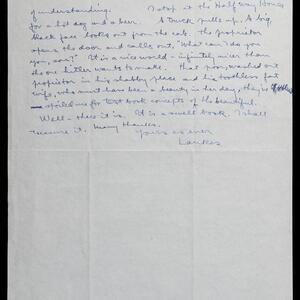 of understanding. I stop at the Halfway House
for a hot dog and a beer. A truck pulls up. A big,
black face looks out from the cab. The proprietor
opens the door and calls out, "What can I do for
you, son?" It is a nice world - infinitely nicer than
the one Hitler wants to make. That poor, worn out
proprietor in his shabby place and his toothless fat
wife, who must have been a beauty in her day, they've
spoiled me for text book concepts of the beautiful.
Well - there it is. It is a swell book. I shall
treasure it. Many thanks.
Yours as ever